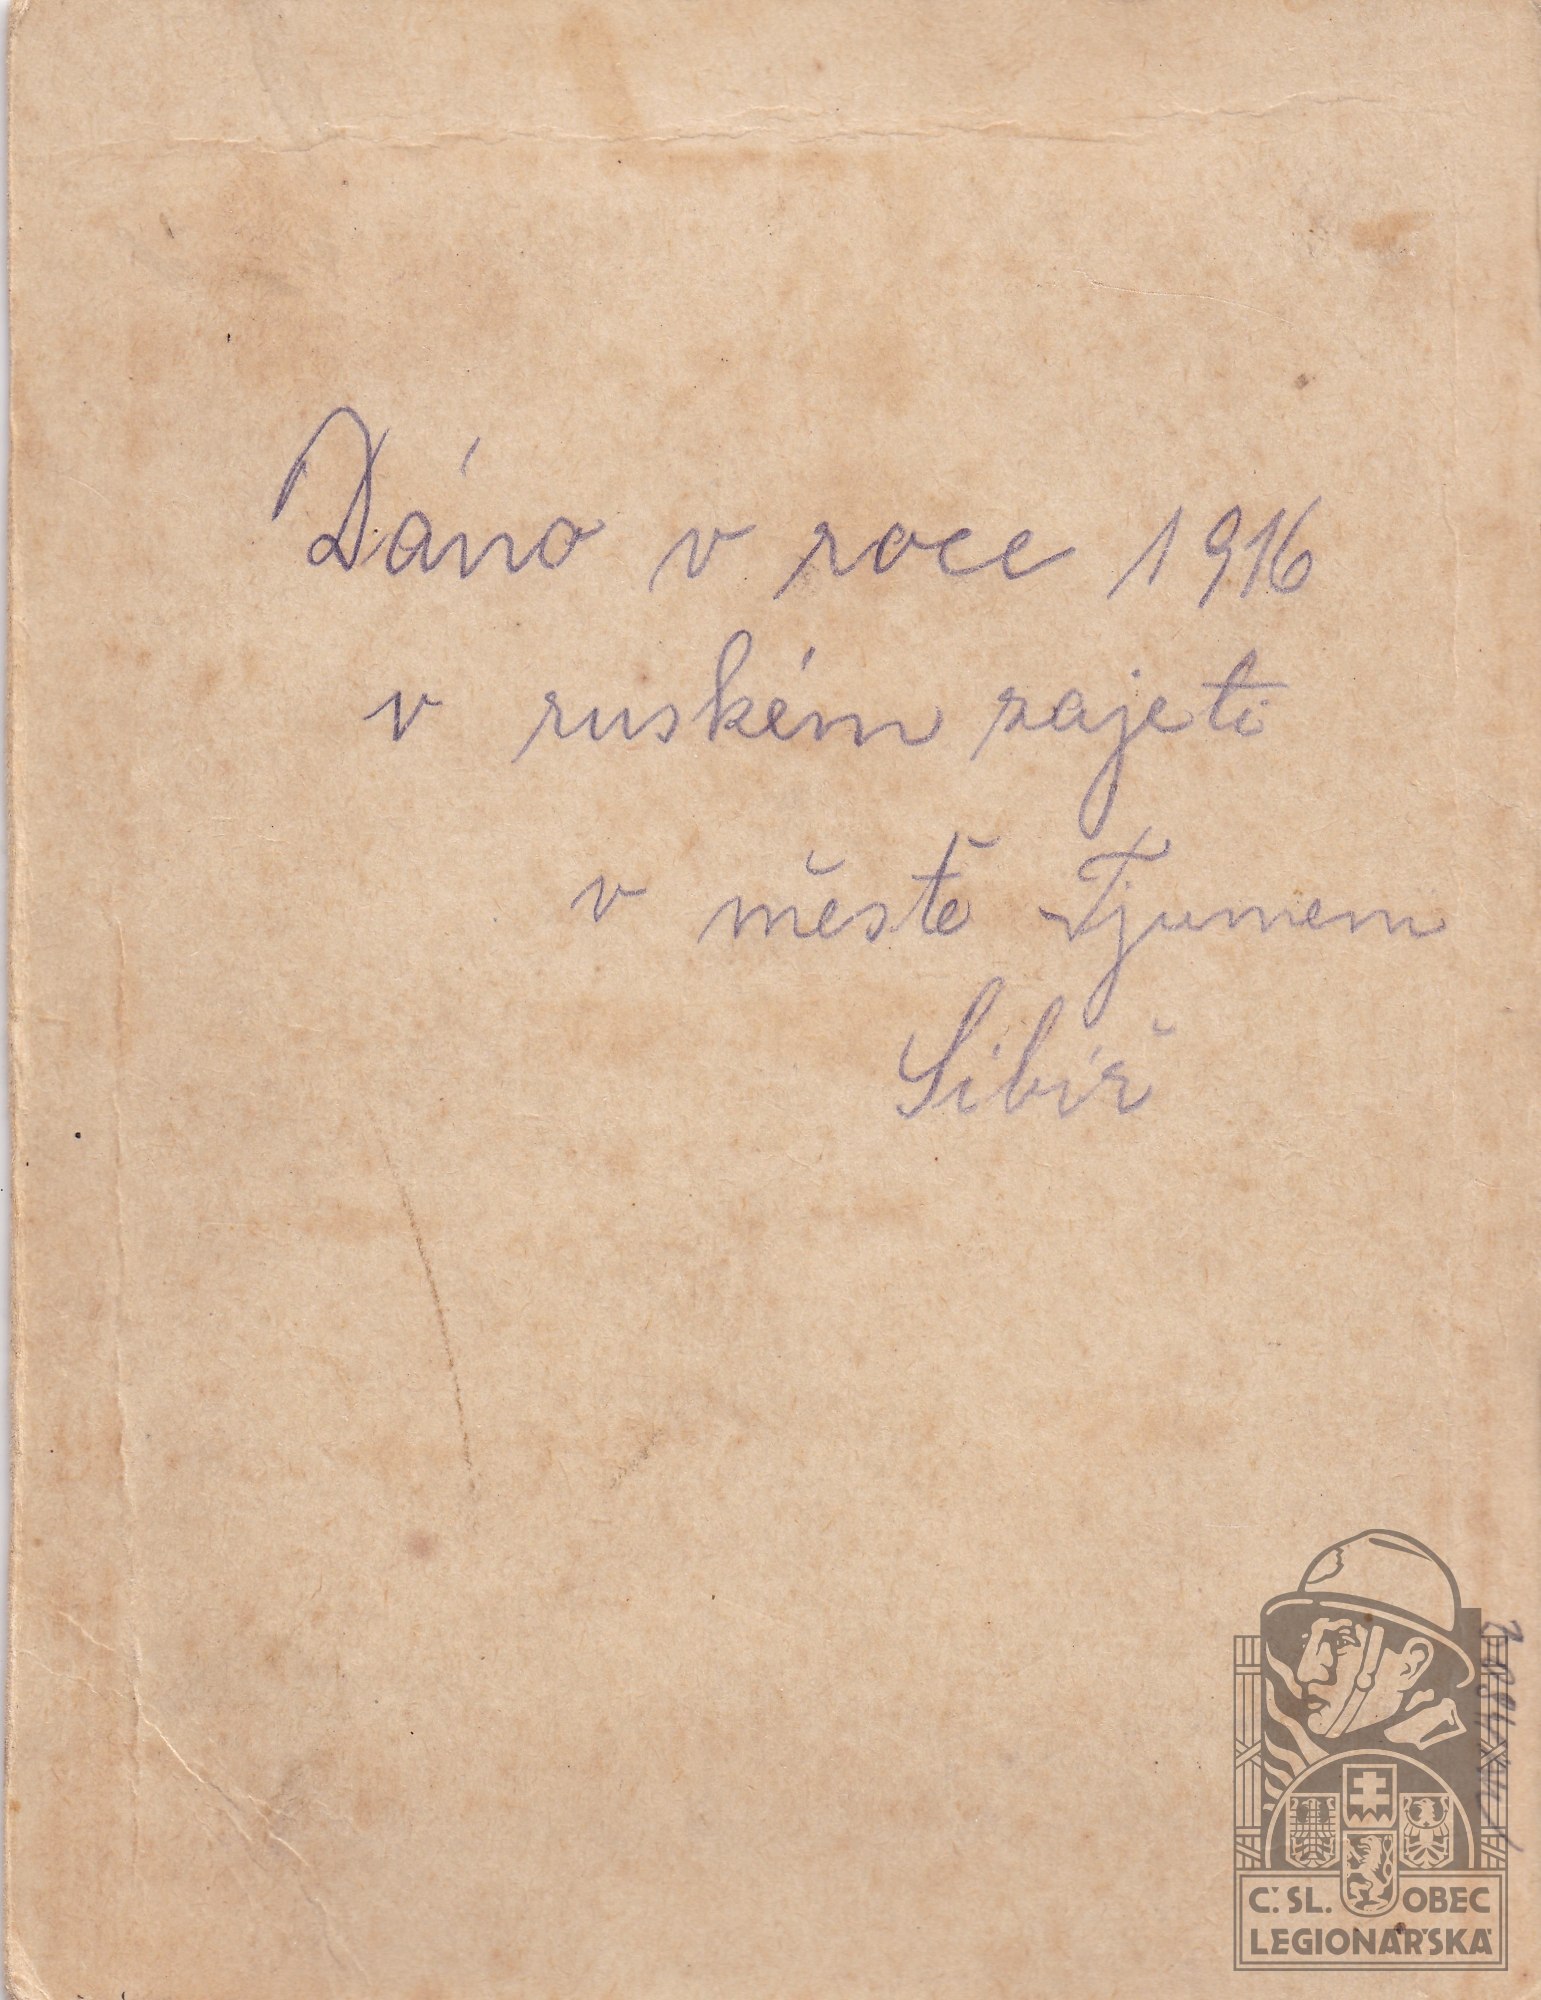 Dáno v roce 1916
v ruském zajeti
v městě Tjumem
Sibiř
Č. SL. OBEC
LEGIONÁŘSKÁ